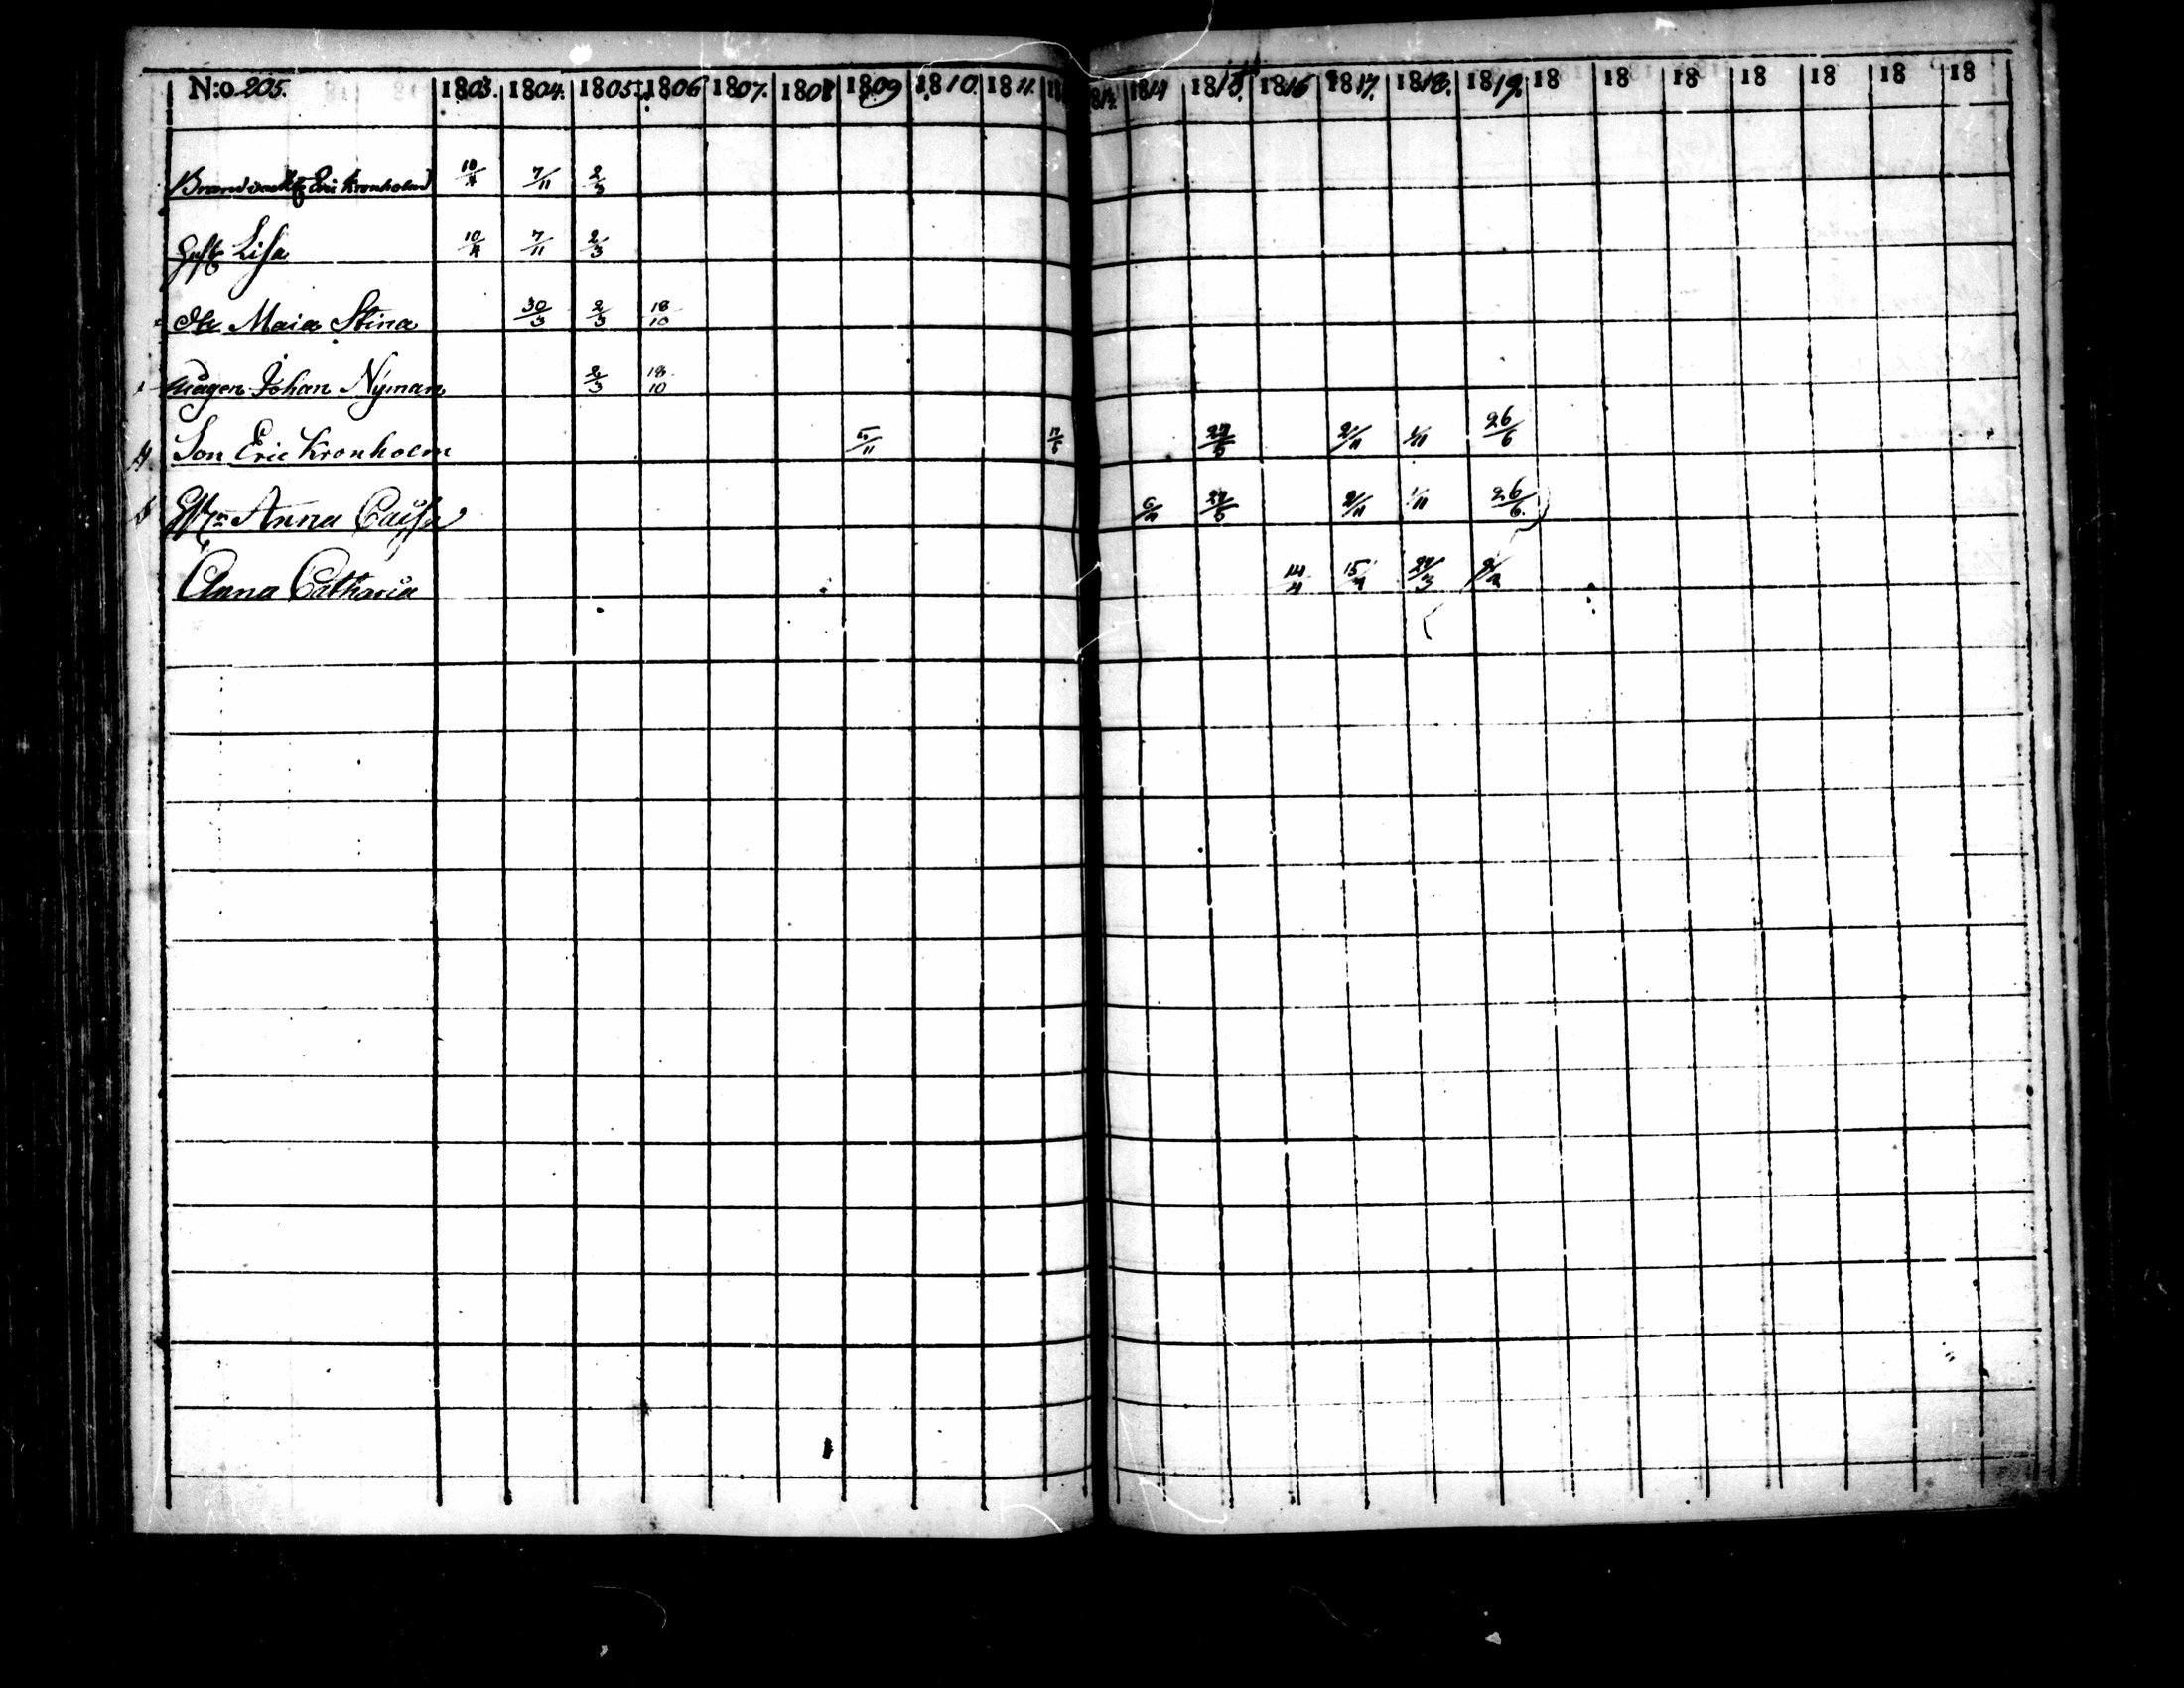 N:o 205. 1803. 1804. 1805. 1806 1807. 1808 1809 1810. 1811. 1814 1815. 1816 1817. 1818. 1819. 18 18 18 18 18 18 18
Eric Kronholm 10/4 7/11 2/3
Hust Lisa 10/4 7/11 2/3
Maia Stina 30/3 2/3 18/10
mågen Johan Nyman 2/3 18/10
Son Eric Kronholm 5/11 27/5 2/11 1/11 26/6
Anna Cajsa 27/5 2/11 1/11 26/6
Anna Catharia 14/4 15/4 27/3